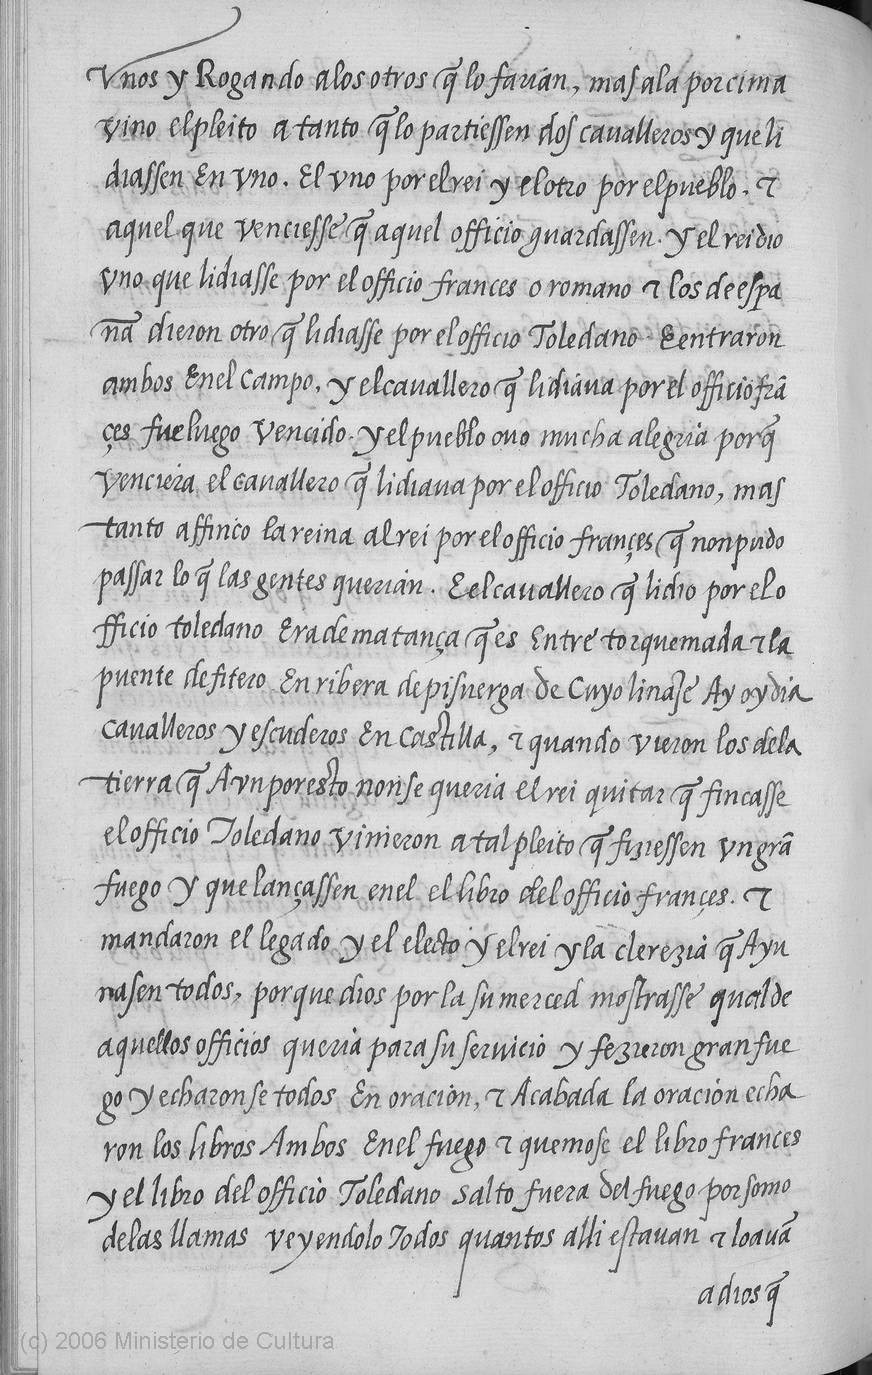 Vnos y Rogando alos otros q̃ lo farian, mas ala por cima
vino el pleito a tanto q̃ lo partiessen dos cavalleros y que li
diassen En vno. El vno por el rei y el otro por el pueblo. τ
aquel que venciesse q̃ aquel officio guardassen. y el rei dio
vno que lidiasse por el officio frances o romano τ los de espa
ña dieron otro q̃ lidiasse por el officio Toledano E entraron
ambos En el campo, y el cavallero q̃ lidiaua por el officio frã
çes fue luego vencido. y el pueblo ouo mucha alegria porq̃
venciera el cavallero q̃ lidiaua por el officio Toledano, mas
tanto affinco la reina al rei por el officio françes q̃ non pudo
passar lo q̃ las gentes querian. E el cavallero q̃ lidio por el o
fficio toledano Era de matança q̃ es Entre torquemada τ la
puente de fitero En ribera de pisuerga de Cuyo linaje Ay oy dia
cavalleros y escuderos En castilla, τ quando vieron los dela
tierra q̃ Avn por esto non se queria el rei quitar q̃ fincasse
el officio Toledano vinieron a tal pleito q̃ fiziessen vn grã
fuego y que lançassen enel el libro del officio françes. τ
mandaron el legado y el electo y el rei y la clerezia q̃ Ayu
nasen todos, porque dios por la su merced mostrasse qual de
aquellos officios queria para su servicio y fezieron gran fue
go y echaronse todos En oracion, τ Acabada la oracion echa
ron los libros Ambos En el fuego τ quemose el libro frances
y el libro del officio Toledano salto fuera del fuego por somo
delas llamas veyendolo Todos quantos alli estavan τ loauã
a dios q̃
(c) 2006 Ministerio de Cultura